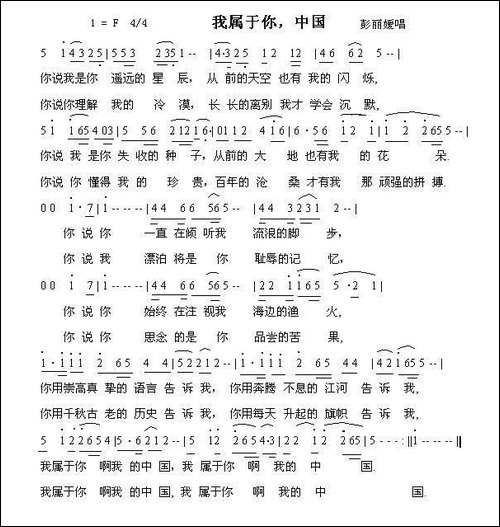 1 = F 4/4 我属于你，中国 彭丽媛唱
5 1 4 3 2 5 | 5 5 3 2 3 5 1 - - | 4 · 3 2 5 1 2 - - | 4 6 6 2 5 - - |
你说我是你 遥远的 星 辰， 从 前的天空 也有 我的 闪 烁，
你说你理解 我的 冷 漠， 长 长的离别 我才 学会 沉 默，
你说 我 是你 失 收的 种 子，从前的 大 地 也有我 的 花 朵．
你说 你 懂得 我 的 珍 贵，百年的 沧 桑 才有我 那 顽强的 拼 搏．
0 0 1 · 7 | 1 - - - - | 4 4 6 6 5 6 5 - - | 4 4 3 2 3 1 2 - - |
你 说 你 一直 在倾 听我 流浪的脚 步，
你 说 我 漂泊 将是 你 耻辱的记 忆，
0 0 1 · 7 | 1 - - - - | 4 4 6 6 5 6 5 - - | 2 2 1 1 6 5 5 · 2 1 |
你 说 你 始终 在注 视我 海边的渔 火，
你 说 你 思念 的是 你 品尝的苦 果，
1 · 1 1 1 2 6 5 4 4 | 5 2 2 1 2 - - | 1 · 1 1 1 2 6 5 4 4 | 4 2 1 6 5 5 - - |
你用崇高真 挚的 语言 告 诉 我， 你用奔腾 不息的 江河 告 诉 我，
你用千秋古 老的 历史 告 诉 我， 你用每天 升起的 旗帜 告 诉 我，
我属于你 啊我 的中 国，我 属于你 啊 我的 中 国．
我属于你 啊我 的中 国，我 属于你 啊 我的 中 国．